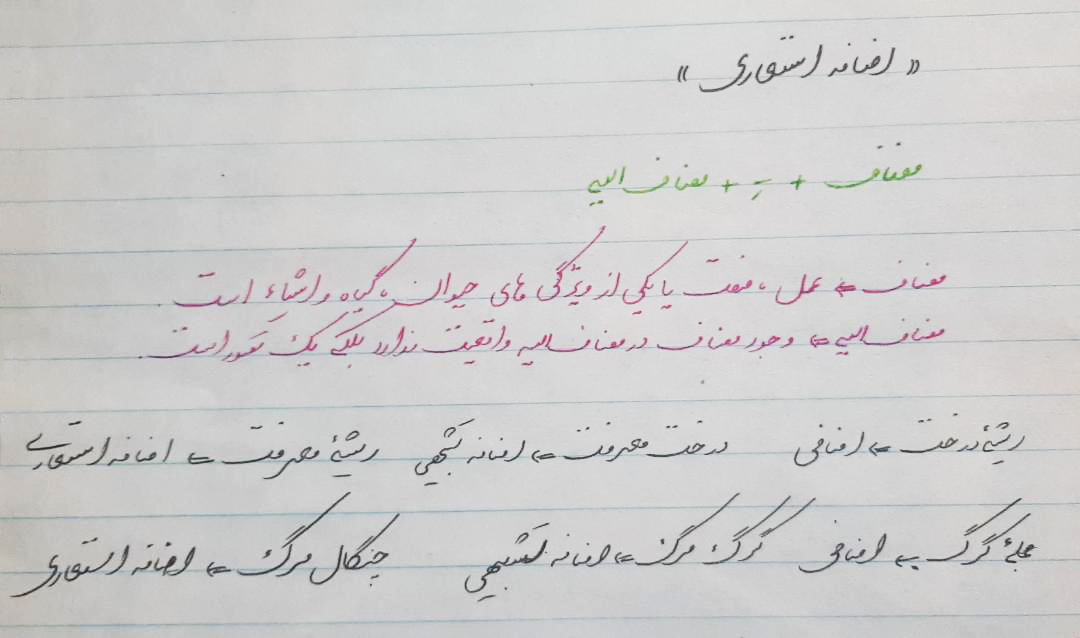 « اضافه استعاری »
مضاف + ـِ + مضاف الیه
مضاف ⇐ عمل ، صفت یا یکی از ویژگی های حیوان ، گیاه و اشیاء است .
مضاف الیه ⇐ وجود مضاف در مضاف الیه واقعیت ندارد بلکه یک تصور است .
ریشهٔ درخت ⇐ اضافی درخت معرفت ⇐ اضافه تشبیهی ریشهٔ معرفت ⇐ اضافه استعاری
حملهٔ گرگ ⇐ اضافی گرگ مرگ ⇐ اضافه تشبیهی چنگال مرگ ⇐ اضافه استعاری